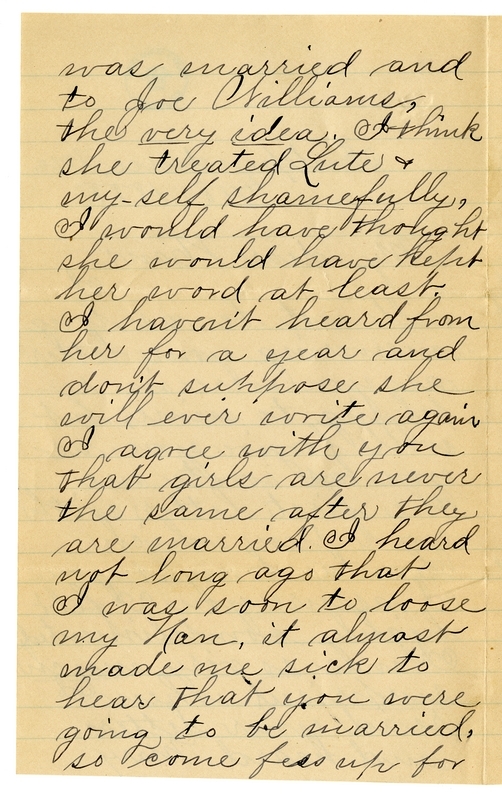 was married and
to Joe Williams,
the very idea. I think
she treated Lute &
my-self shamefully,
I would have thought
she would have kept
her word at least.
I haven't heard from
her for a year and
don't suppose she
will ever write again
I agree with you
that girls are never
the same after they
are married. I heard
not long ago that
I was soon to loose
my Nan, it almost
made me sick to
hear that you were
going to be married,
so come fess up for